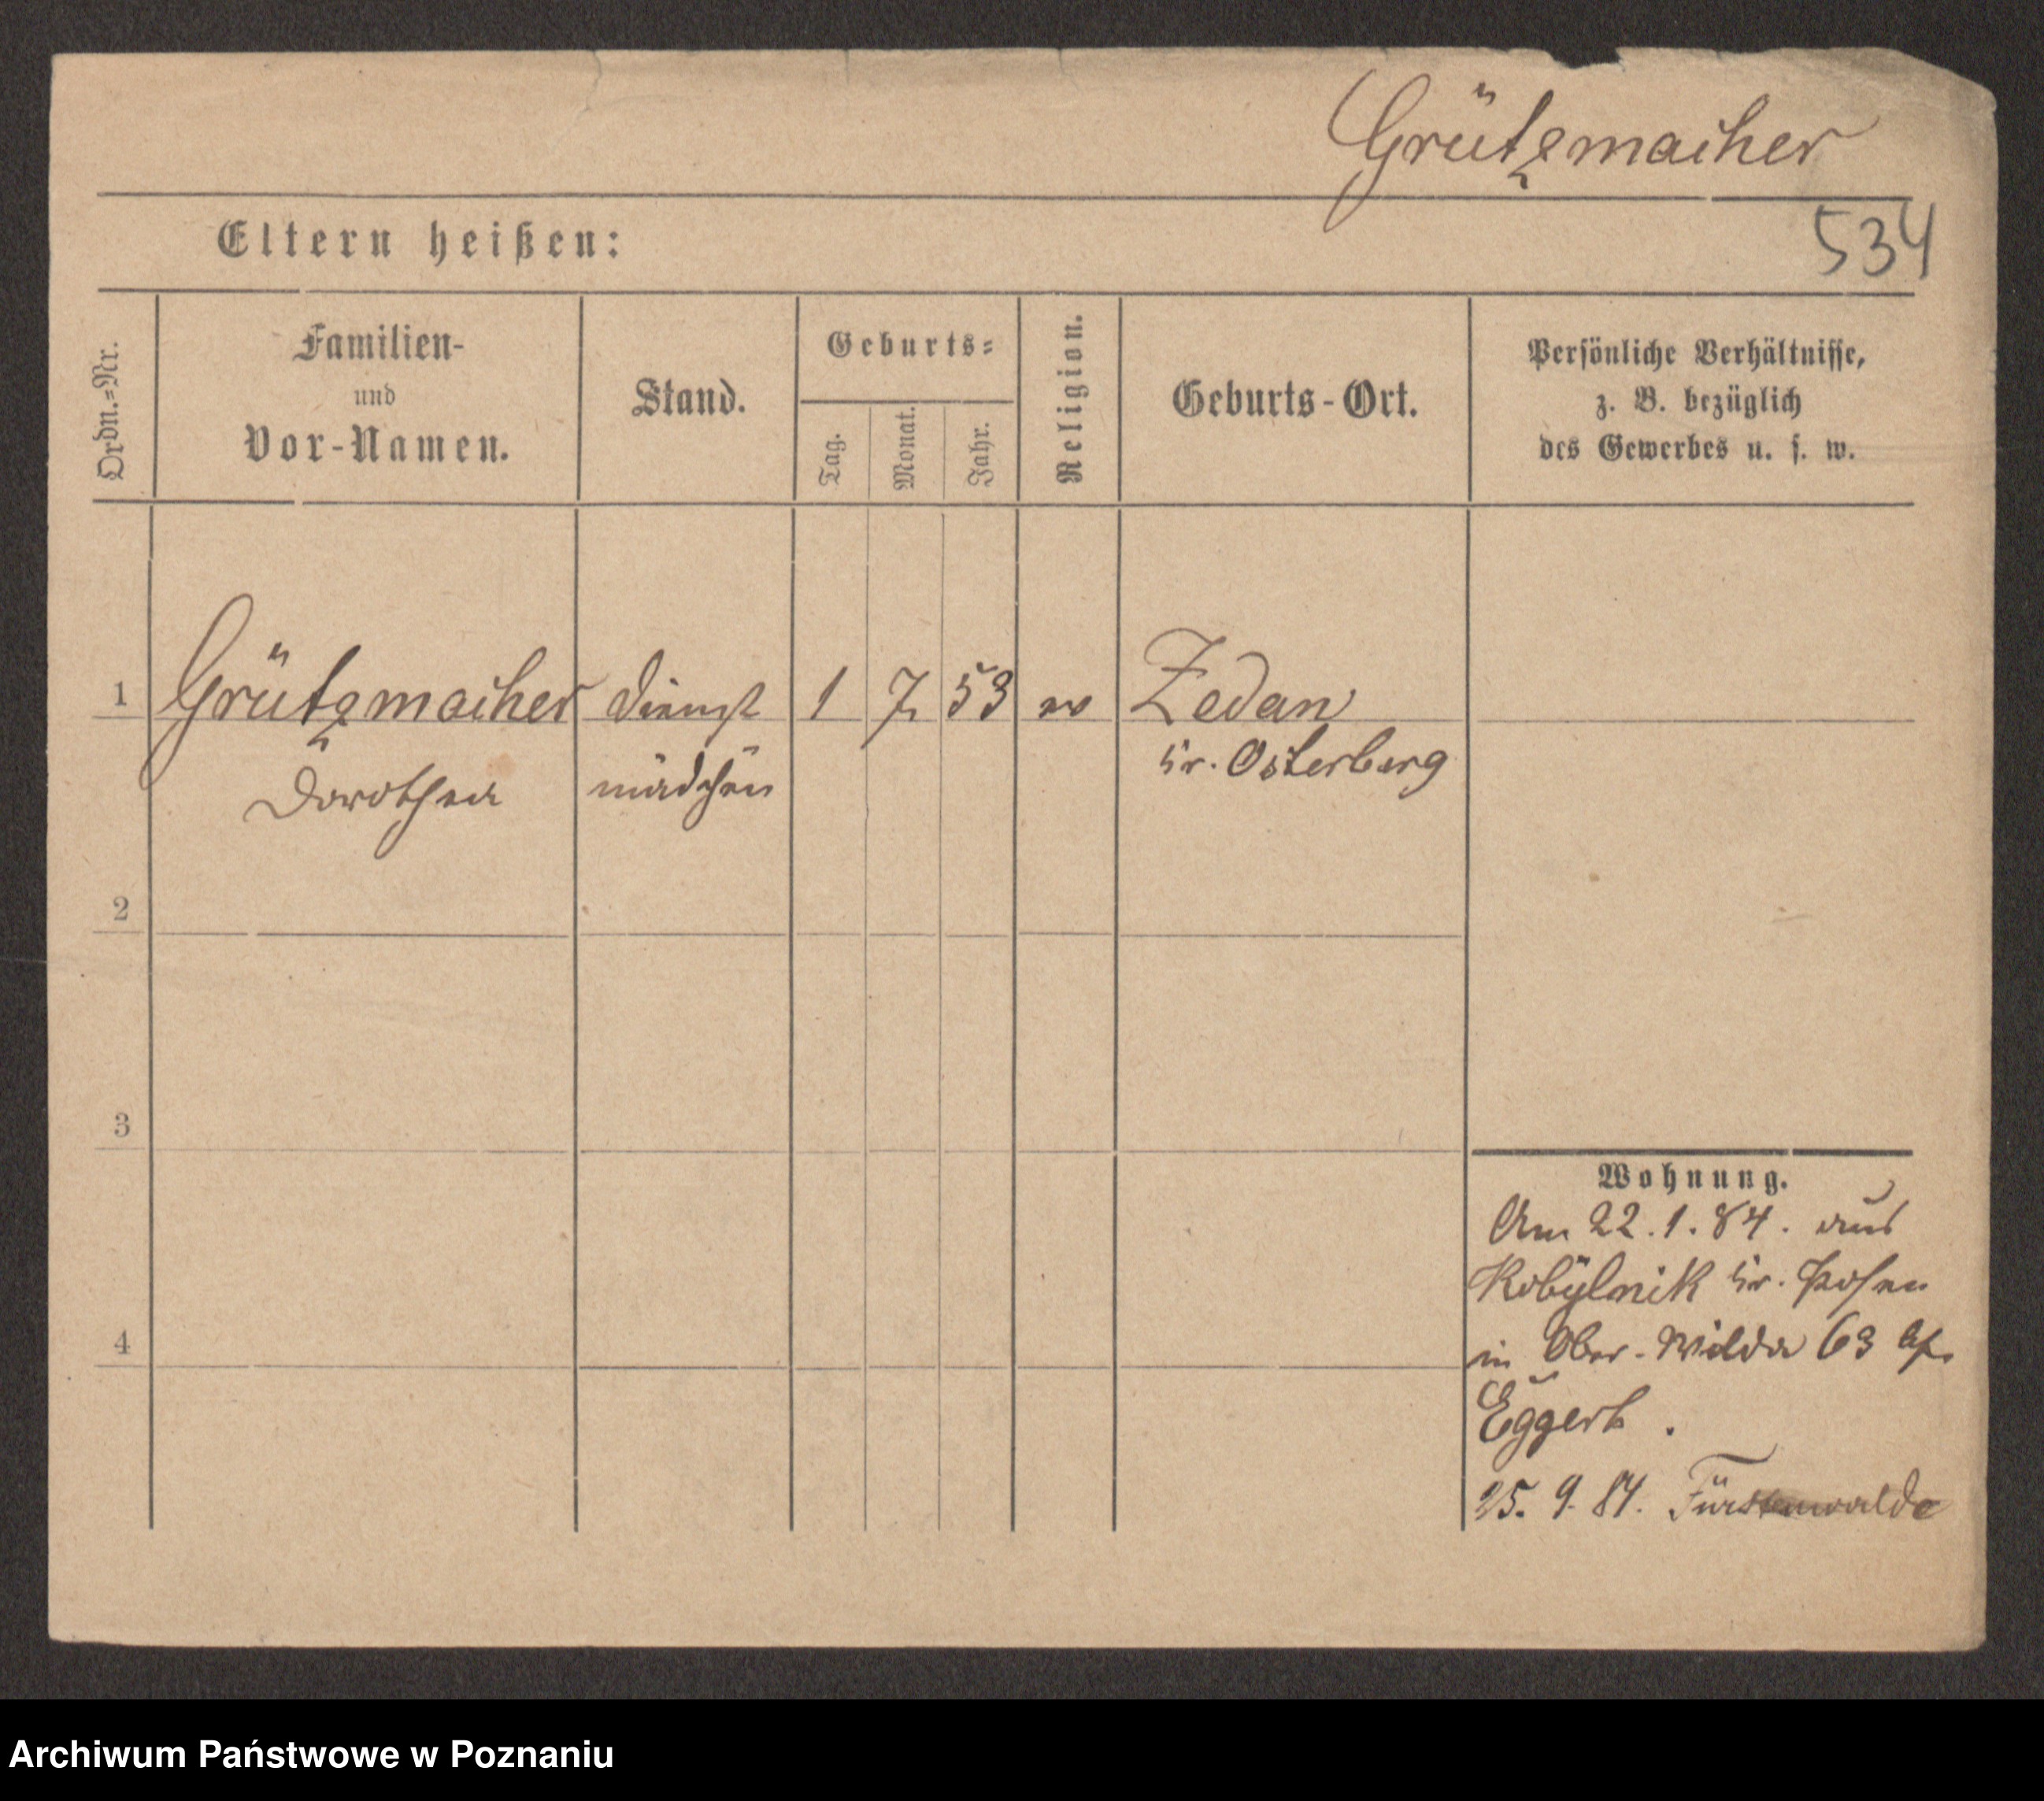 Grützmacher
534
Eltern heißen:
Ordn.=Nr.
Familien-
und
Vor-Namen.
Stand.
Geburts=
Tag.
Monat.
Jahr.
Religion.
Geburts-Ort.
Persönliche Verhältnisse,
z. B. bezüglich
des Gewerbes u. s. w.
1 Grützmacher Dienst 1 7 53 ev Zedan
Dorothea mädchen Kr. Osterberg
2
3
4
Wohnung.
Am 22.1.84. aus
Kobylnik Kr. Posen
in Ober-Wilda 63 bei
Eggert.
25. 9. 84. Fürstenwalde
Archiwum Państwowe w Poznaniu